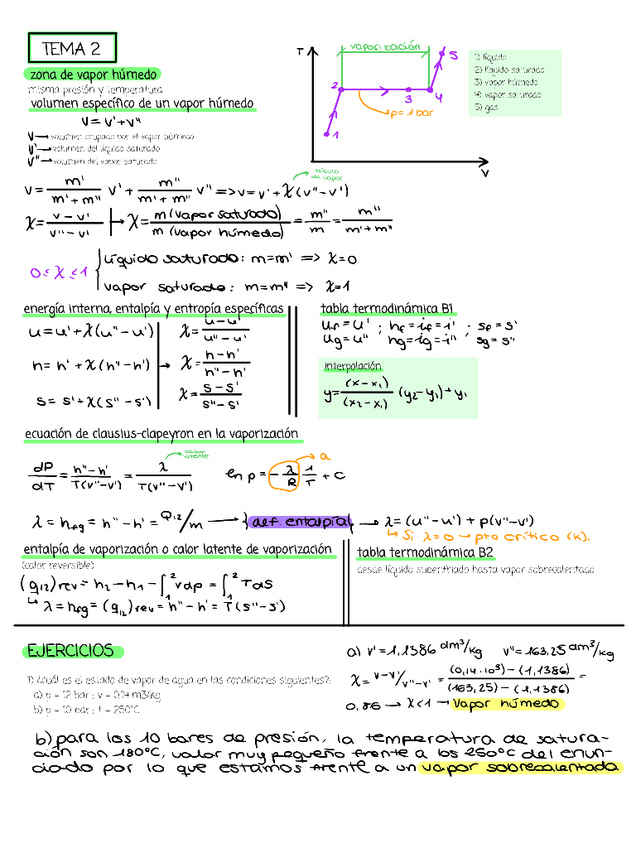 TEMA 2
zona de vapor húmedo
misma presión y temperatura
volumen específico de un vapor húmedo
V = V' + V"
V → volumen ocupado por el vapor húmedo
V' → volumen del líquido saturado
V" → volumen del vapor saturado
T
vaporización
1
2
3
4
5
p = 1 bar
V
1) líquido
2) líquido saturado
3) vapor húmedo
4) vapor saturado
5) gas
v = m'/(m' + m") v' + m"/(m' + m") v" => v = v' + χ(v" - v')
título de vapor
χ = (v - v')/(v" - v') → χ = m (vapor saturado)/m (vapor húmedo) = m"/m = m"/(m' + m")
0 ≤ χ ≤ 1
líquido saturado: m = m' => χ = 0
vapor saturado: m = m" => χ = 1
energía interna, entalpía y entropía específicas
u = u' + χ(u" - u') χ = (u - u')/(u" - u')
h = h' + χ(h" - h') → χ = (h - h')/(h" - h')
s = s' + χ(s" - s') χ = (s - s')/(s" - s')
tabla termodinámica B1
uf = u' ; hf = if = i' ; sf = s'
ug = u" ; hg = ig = i" ; sg = s"
interpolación
y = (x - x₁)/(x₂ - x₁) (y₂ - y₁) + y₁
ecuación de clausius-clapeyron en la vaporización
dP/dT = (h" - h')/T(v" - v') = λ/T(v" - v')
calor latente
ln p = - λ/R 1/T + C
a
λ = hfg = h" - h' = Q₁₂/m → {def. entalpía} → λ = (u" - u') + p(v" - v')
↳ Si λ = 0 → pto crítico (K).
entalpía de vaporización o calor latente de vaporización
(calor reversible)
(q₁₂)rev = h₂ - h₁ - ∫₁² vdp = ∫₁² Tds
↳ λ = hfg = (q₁₂)rev = h" - h' = T(s" - s')
tabla termodinámica B2
desde líquido subenfriado hasta vapor sobrecalentado
EJERCICIOS
1) ¿cuál es el estado de vapor de agua en las condiciones siguientes?:
a) p = 12 bar ; v = 0.14 m3/kg
b) p = 10 bar ; t = 250ºC
a) v' = 1,1386 dm³/kg v" = 163,25 dm³/kg
χ = v - v'/v" - v' = (0,14·10³) - (1,1386)/(163,25) - (1,1386) =
0,86 → χ < 1 → vapor húmedo
b) para los 10 bares de presión, la temperatura de satura-
ción son 180ºC, valor muy pequeño frente a los 250ºC del enun-
ciado por lo que estamos frente a un vapor sobrecalentado